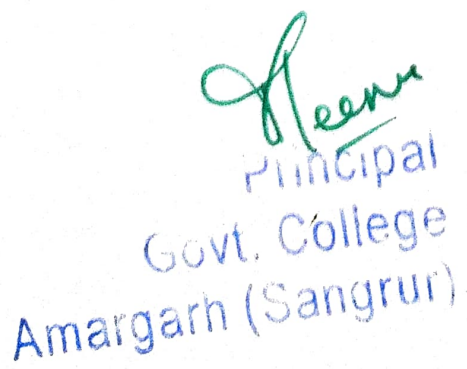 Meenu
Principal
Govt. College
Amargarh (Sangrur)